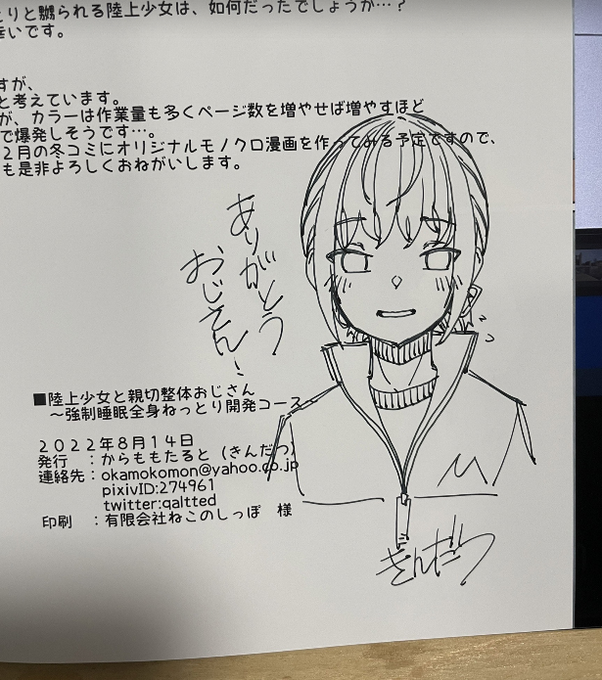 とりと嬲られる陸上少女は、如何だったでしょうか…？
幸いです。
すが、
と考えています。
が、カラーは作業量も多くページ数を増やせば増やすほど
で爆発しそうです…。
２月の冬コミにオリジナルモノクロ漫画を作ってみる予定ですので、
も是非よろしくおねがいします。
ありがとう
おじさん！
■陸上少女と親切整体おじさん
～強制睡眠全身ねっとり開発コース～
２０２２年８月１４日
発行　：からももたると（きんだつ）
連絡先：okamokomon@yahoo.co.jp
pixivID:274961
twitter:qaltted
印刷　：有限会社ねこのしっぽ　様
きんだつ